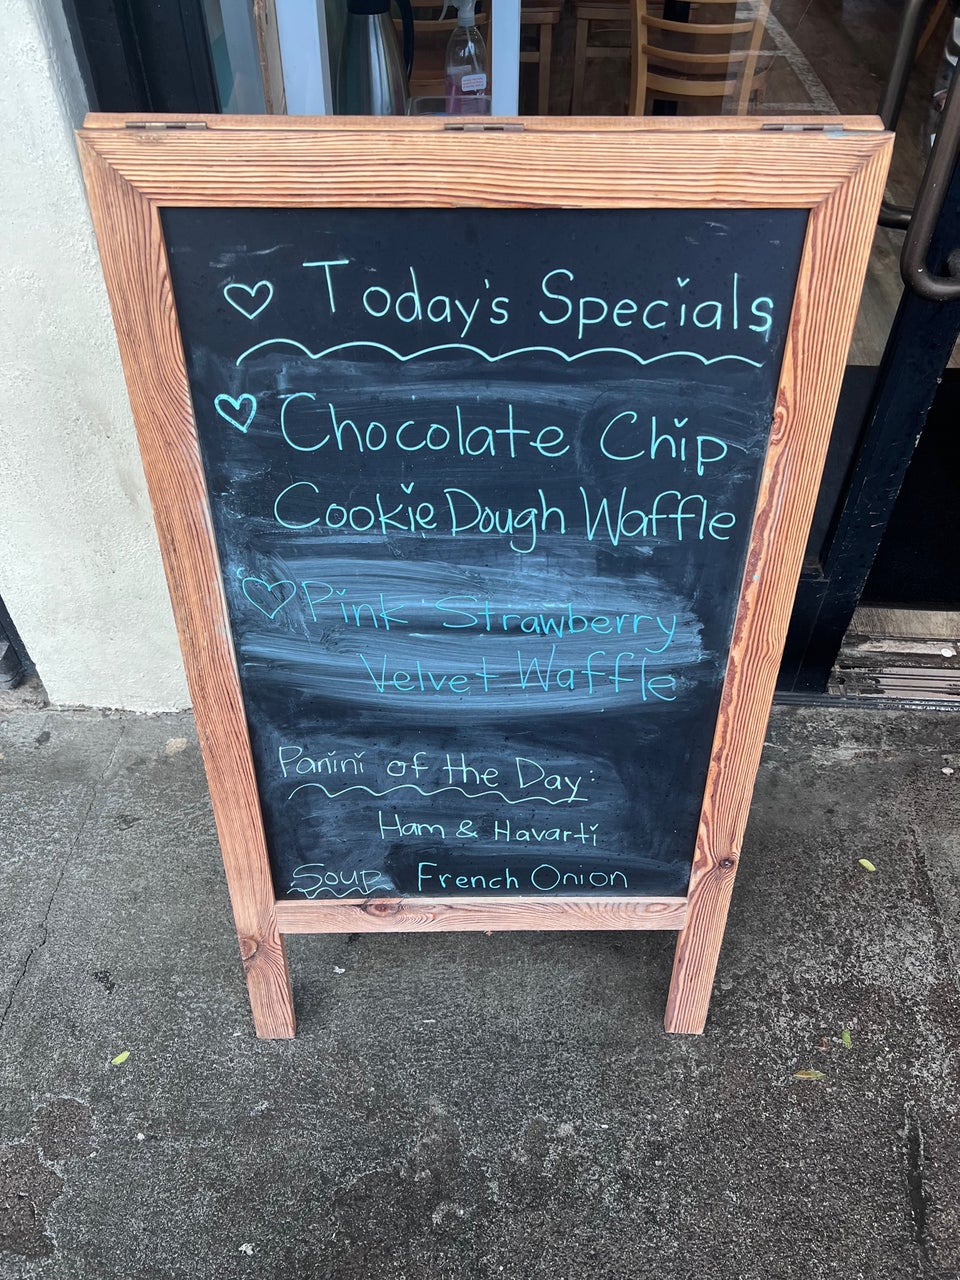 ♡ Today's Specials
♡ Chocolate Chip
Cookie Dough Waffle
♡ Pink Strawberry
Velvet Waffle
Panini of the Day:
Ham & Havarti
Soup French Onion